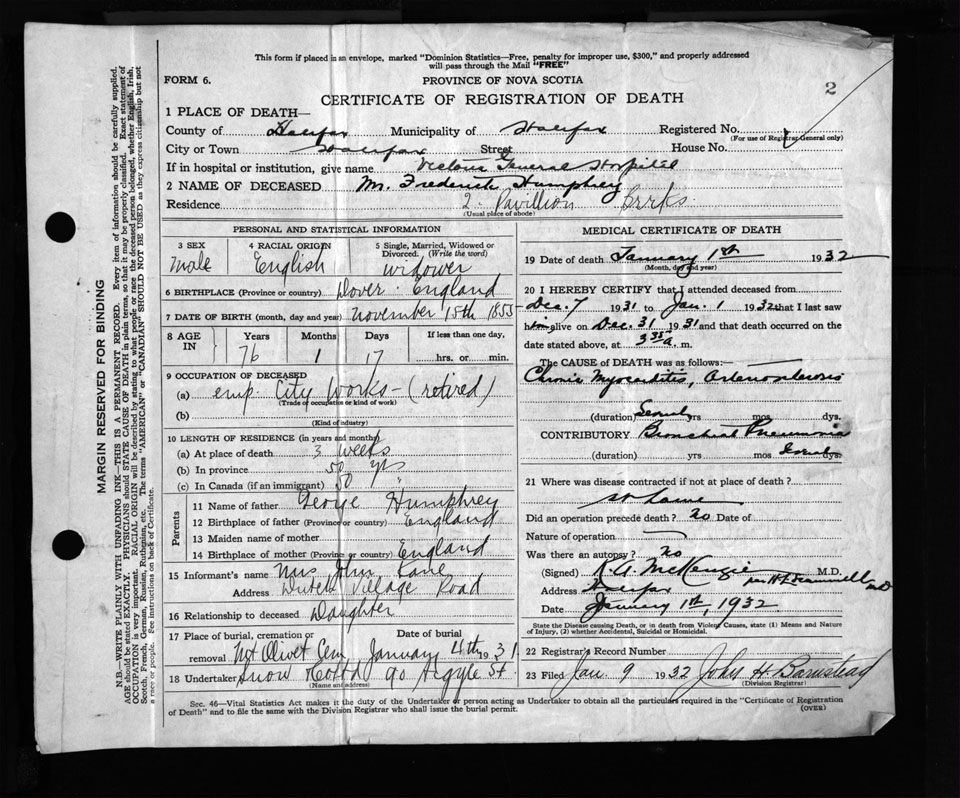 This form if placed in an envelope, marked "Dominion Statistics—Free, penalty for improper use, $300," and properly addressed
will pass through the Mail "FREE"
FORM 6.
PROVINCE OF NOVA SCOTIA
2
CERTIFICATE OF REGISTRATION OF DEATH
1 PLACE OF DEATH—
County of Halifax Municipality of Halifax Registered No.
(For use of Registrar General only)
City or Town Halifax Street House No.
If in hospital or institution, give name Victoria General Hospital
2 NAME OF DECEASED Mr. Frederick Humphrey
Residence 2 Pavillion Brrks
(Usual place of abode)
PERSONAL AND STATISTICAL INFORMATION
3 SEX 4 RACIAL ORIGIN 5 Single, Married, Widowed or Divorced. (Write the word)
Male English widower
6 BIRTHPLACE (Province or country) Dover England
7 DATE OF BIRTH (month, day and year) November 15th 1855
8 AGE IN Years Months Days If less than one day,
76 1 17 hrs. or min.
9 OCCUPATION OF DECEASED
(a) emp. City Works - (retired)
(Trade or occupation or kind of work)
(b)
(Kind of industry)
10 LENGTH OF RESIDENCE (in years and months)
(a) At place of death 3 weeks
(b) In province 50 yrs
(c) In Canada (if an immigrant) 50 "
Parents
11 Name of father George Humphrey
12 Birthplace of father (Province or country) England
13 Maiden name of mother
14 Birthplace of mother (Province or country) England
15 Informant's name Mrs John Lane
Address Dutch Village Road
16 Relationship to deceased Daughter
17 Place of burial, cremation or removal Mt Olivet Cem Date of burial January 4th 1931
18 Undertaker Snow Co Ltd 90 Argyle St.
(Name and address)
MEDICAL CERTIFICATE OF DEATH
19 Date of death January 1st 1932
(Month, day and year)
20 I HEREBY CERTIFY that I attended deceased from
Dec. 7 1931 to Jan. 1 1932 that I last saw
him alive on Dec. 31 1931 and that death occurred on the
date stated above, at 3 35 a. m.
The CAUSE of DEATH was as follows:—
Chronic Myocarditis, Arteriosclerosis
(duration) yrs mos dys.
CONTRIBUTORY Bronchial Pneumonia
(duration) yrs mos dys.
21 Where was disease contracted if not at place of death?
Did an operation precede death? No Date of
Nature of operation
Was there an autopsy? No
(Signed) K. A. McKenzie M.D.
Address Halifax
Date January 1st, 1932
State the Disease causing Death, or in death from Violent Causes, state (1) Means and Nature of Injury, (2) whether Accidental, Suicidal or Homicidal.
22 Registrar's Record Number
23 Filed Jan. 9 1932 John H Barnstead
(Division Registrar)
Sec. 46—Vital Statistics Act makes it the duty of the Undertaker or person acting as Undertaker to obtain all the particulars required in the "Certificate of Registration
of Death" and to file the same with the Division Registrar who shall issue the burial permit.
(OVER)
MARGIN RESERVED FOR BINDING
N.B.—WRITE PLAINLY WITH UNFADING INK—THIS IS A PERMANENT RECORD. Every item of information should be carefully supplied.
AGE should be stated EXACTLY. PHYSICIANS should STATE CAUSE OF DEATH in plain terms, so that it may be properly classified. Exact statement of
OCCUPATION is very important. RACIAL ORIGIN will be described by stating to what people or race the deceased person belonged, whether English, Irish,
Scotch, French, German, Russian, Ruthenian, etc. The terms "AMERICAN" or "CANADIAN" SHOULD NOT BE USED as they express citizenship but not
a race or people. See instructions on back of Certificate.